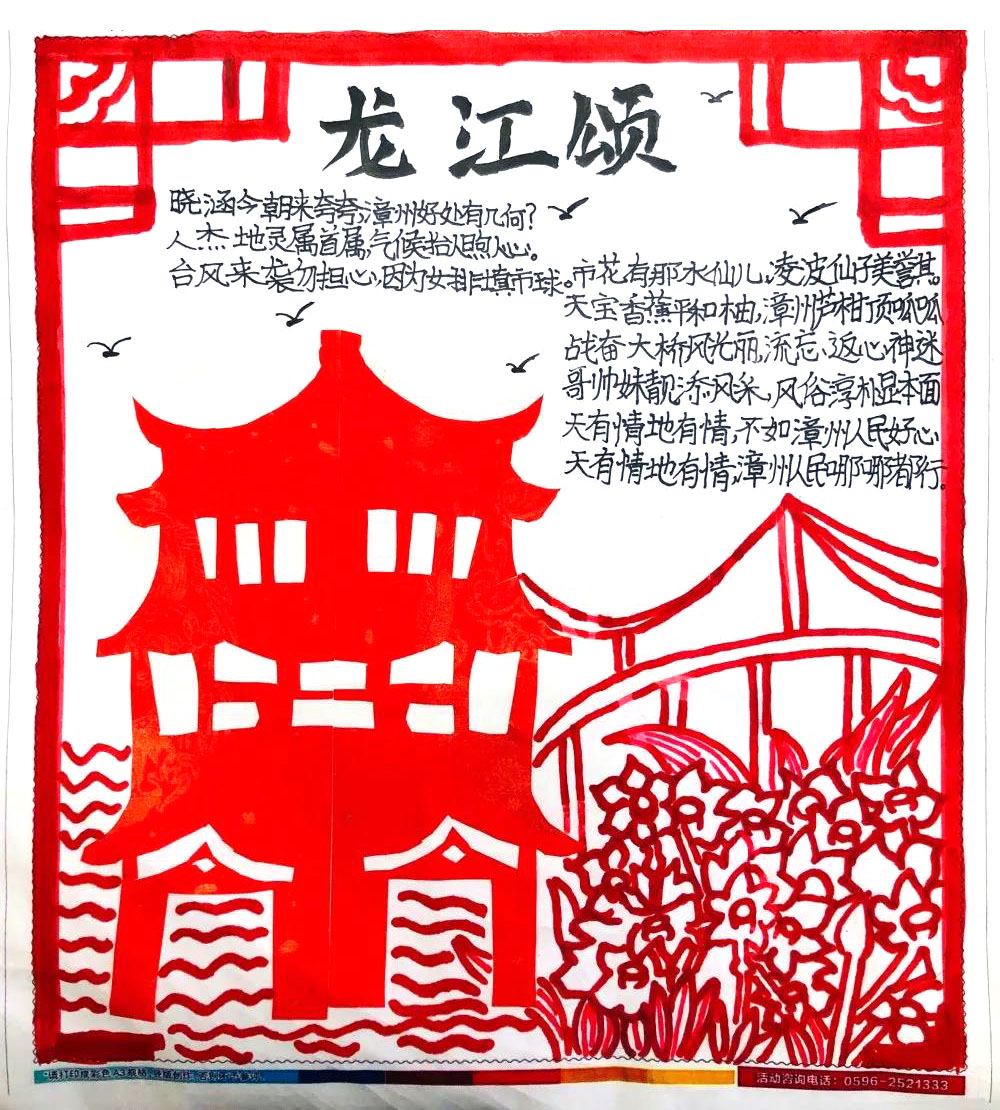 龙江颂
晓涵今朝来夸夸,漳州好处有几何?
人杰地灵属首属,气候抬人煦人心。
台风来袭勿担心,因为女排填市球。
市花有那水仙儿,凌波仙子美誉其。
天宝香蕉平和柚,漳州芦柑顶呱呱
战奋大桥风光丽,流忘返心神迷
哥帅妹靓添风采,风俗淳朴显本面
天有情地有情,不如漳州人民好心
天有情地有情,漳州人民哪哪都行。
A3
活动咨询电话:0596-2521333